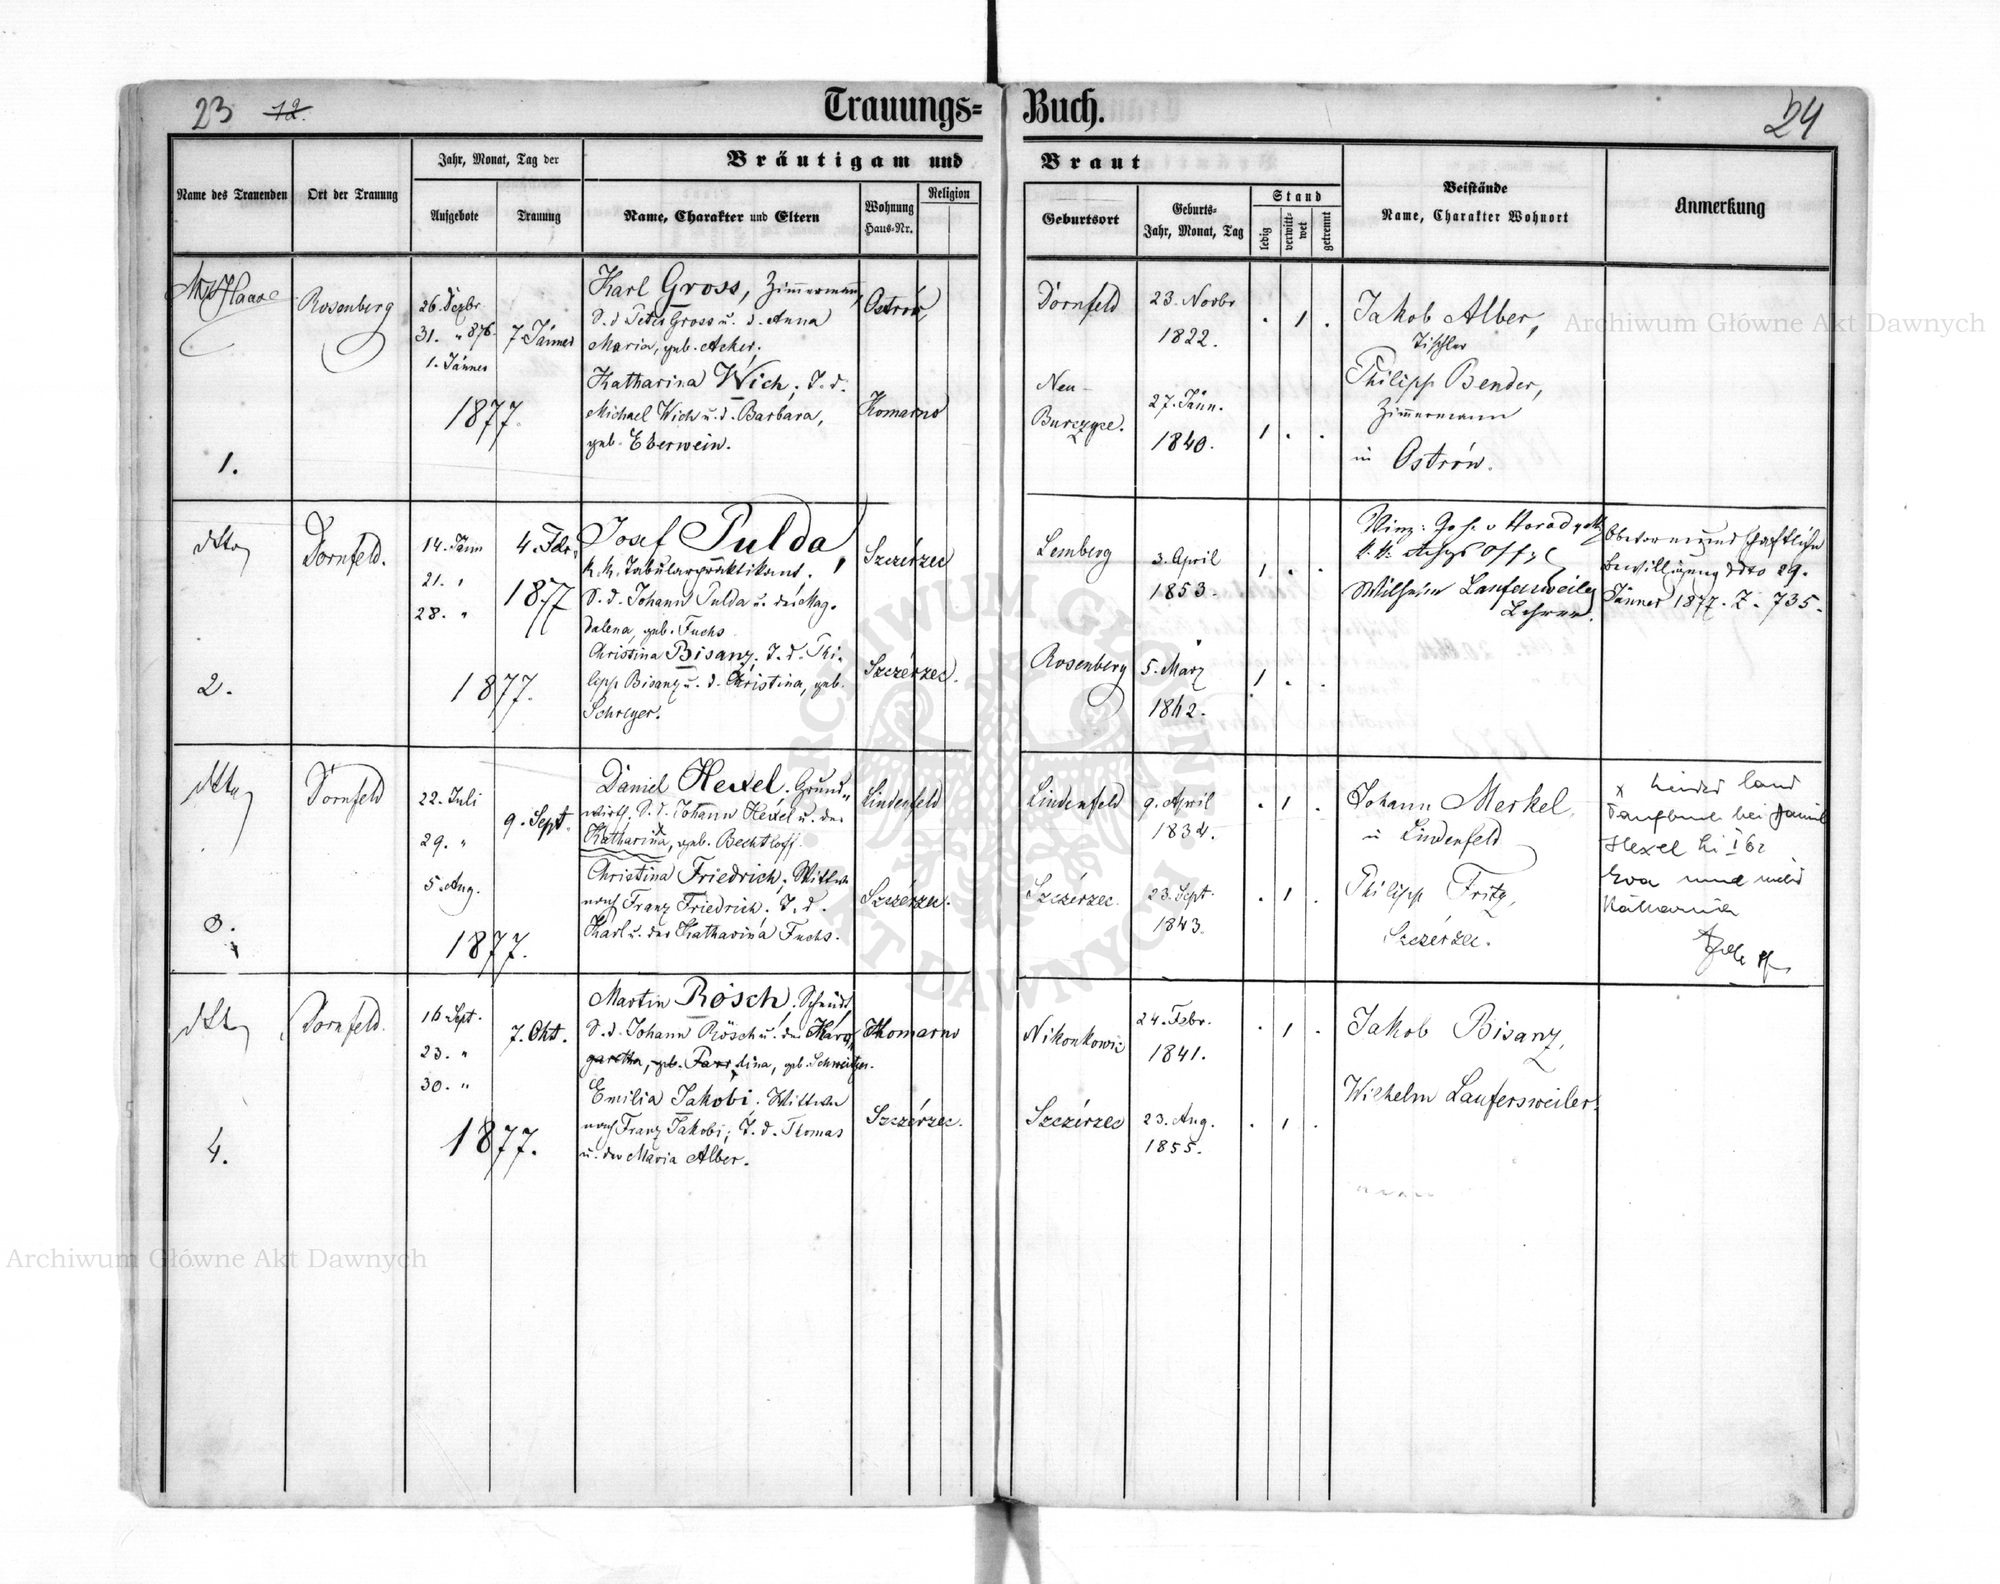 23 12.
Trauungs=Buch.
24
Name des Trauenden
Ort der Trauung
Jahr, Monat, Tag der
Aufgebote
Trauung
Bräutigam und Braut
Name, Charakter und Eltern
Wohnung
Haus=Nr.
Religion
Geburtsort
Geburts=
Jahr, Monat, Tag
Stand
ledig
verwitt-
wet
getrennt
Beistände
Name, Charakter Wohnort
Anmerkung
Haase
1.
Rosenberg
26. Dezbr.
31. " 876.
1. Jänner
7. Jänner
1877.
Karl Gross, Zimmermann,
S. d. Peter Gross u. d. Anna
Maria, geb. Acker.
Katharina Wich, T. d.
Michael Wich u. d. Barbara,
geb. Eberwein.
Ostrów,
Komarno
Dornfeld
23. Novbr
1822.
. 1 .
Neu-
Burczyce.
27. Jänn.
1840.
1 . .
Jakob Alber,
Tischler
Philipp Bender,
Zimmermann
in Ostrów.
dtto
2.
Dornfeld.
14. Jänn
21. "
28. "
4. Febr.
1877
1877.
Josef Pulda,
k. k. Tabularpraktikant.
S. d. Johann Pulda u. der Mag-
dalena, geb. Fuchs
Christina Bisanz, T. d. Phi-
lipp Bisanz u. d. Christina, geb.
Schreyer.
Szczérzec
Szczérzec.
Lemberg
3. April
1853.
1 . .
Rosenberg
5. März
1842.
1 . .
k. k.
Wilhelm Laufersweiler
Lehrer.
Obervormundschaftliche
Bewilligung ddto 29.
Jänner 1877. Z. 735.
dtto
3.
Dornfeld
22. Juli
29. "
5. Aug.
9. Sept.
1877.
Daniel Hexel. Grund-
wirth. S. d. Johann Hexel u. der
Katharina, geb. Bechtloff.
Christina Friedrich, Wittwe
nach Franz Friedrich. T. d.
Karl u. der Katharina Fuchs.
Lindenfeld
Szczérzec.
Lindenfeld
9. April
1834.
. 1 .
Szczérzec.
23. Sept.
1843.
. 1 .
Johann Merkel,
in Lindenfeld
Philipp Fritz,
Szczérzec.
x laut
Taufbuch bei Daniel
Hexel
Eva und nicht
Katharina
dtto
4.
Dornfeld.
16. Sept.
23. "
30. "
7. Okt.
1877.
Martin Rösch, Schmidt,
S. d. Johann Rösch u. der Karo-
garetha, geb. Farr lina, geb. Schweitzer.
Emilia Jakobi. Wittwe
nach Franz Jakobi; T. d. Thomas
u. der Maria Alber.
Komarno
Szczérzec.
Nikonkowic
24. Febr.
1841.
. 1 .
Szczérzec
23. Aug.
1855.
. 1 .
Jakob Bisanz,
Wilhelm Laufersweiler.
Archiwum Główne Akt Dawnych
Archiwum Główne Akt Dawnych
ARCHIWUM GŁÓWNE AKT DAWNYCH